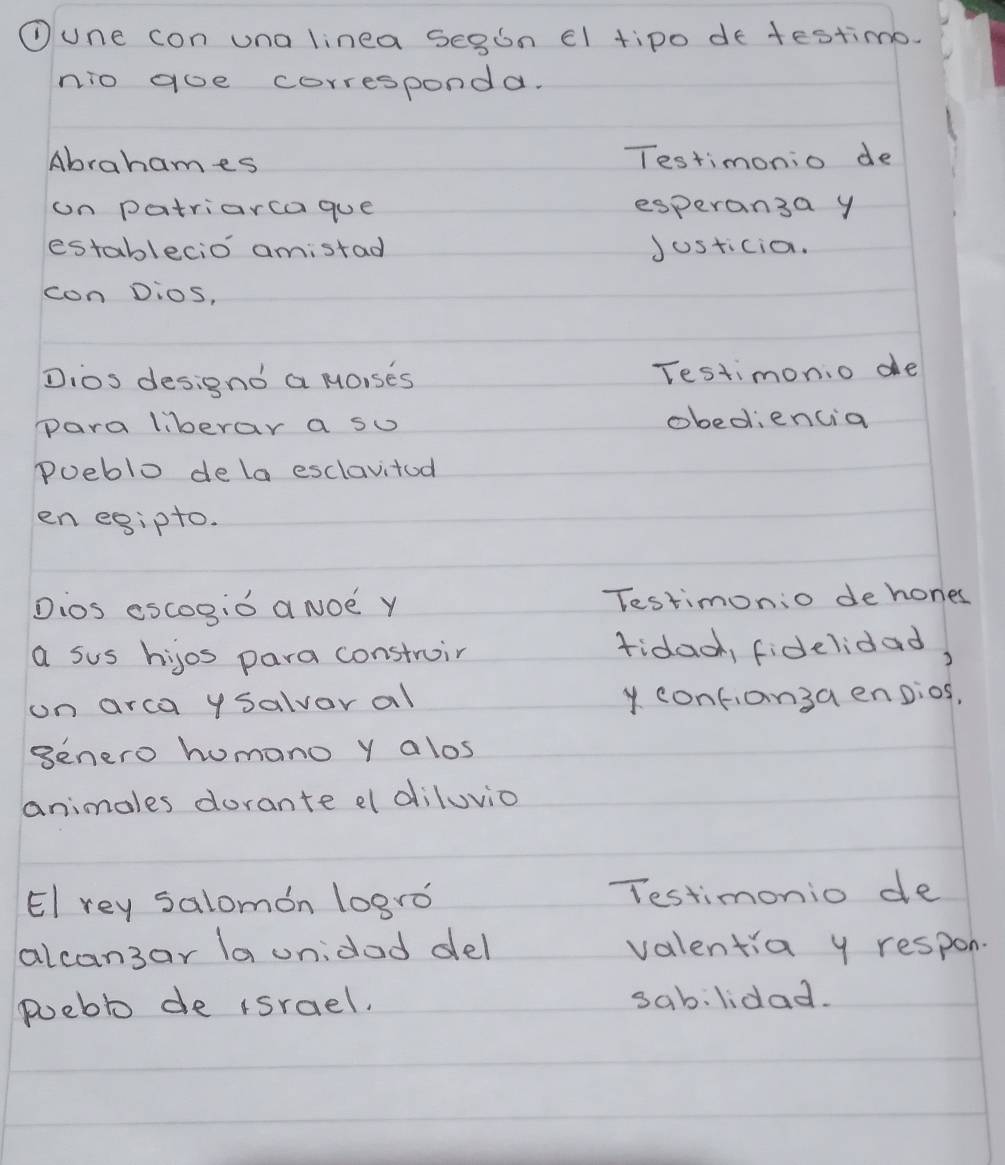 ① une con una linea según el tipo de testimo-
nio que corresponda.
Abraham es
un patriarca que
estableció amistad
con Dios,
Testimonio de
esperanza y
Justicia.
Dios designó a Moisés
para liberar a su
pueblo de la esclavitud
en egipto.
Testimonio de
obediencia
Dios escogió a Noé y
a sus hijos para construir
un arca y salvar al
género humano y a los
animales durante el diluvio
Testimonio de hones
tidad, fidelidad,
y confianza en Dios.
El rey Salomón logró
alcanzar la unidad del
pueblo de israel.
Testimonio de
valentía y respon-
sabilidad.